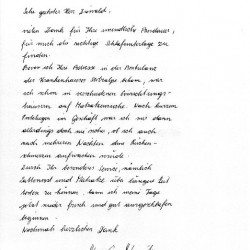 Sehr geehrter Herr
vielen Dank für Ihre unendliche Ausdauer,
für mich die richtige Schlafunterlage zu
finden.
Bevor ich Ihre Adresse in der Ambulanz
des Krankenhauses, war
ich schon in verschiedenen Einrichtungs-
häusern auf Matratzensuche. Nach kurzem
Probeliegen im Geschäft war ich mir dann
allerdings doch nie mehr, ob ich auch
nach mehreren Nächten ohne Rücken-
schmerzen aufwachen würde.
Durch Ihr besonderes Service, nämlich
Lattenrost und Matratze über längere Zeit
testen zu können, kann ich meine Tage
jetzt wieder frisch und gut ausgeschlafen
beginnen.
Nochmals herzlichen Dank